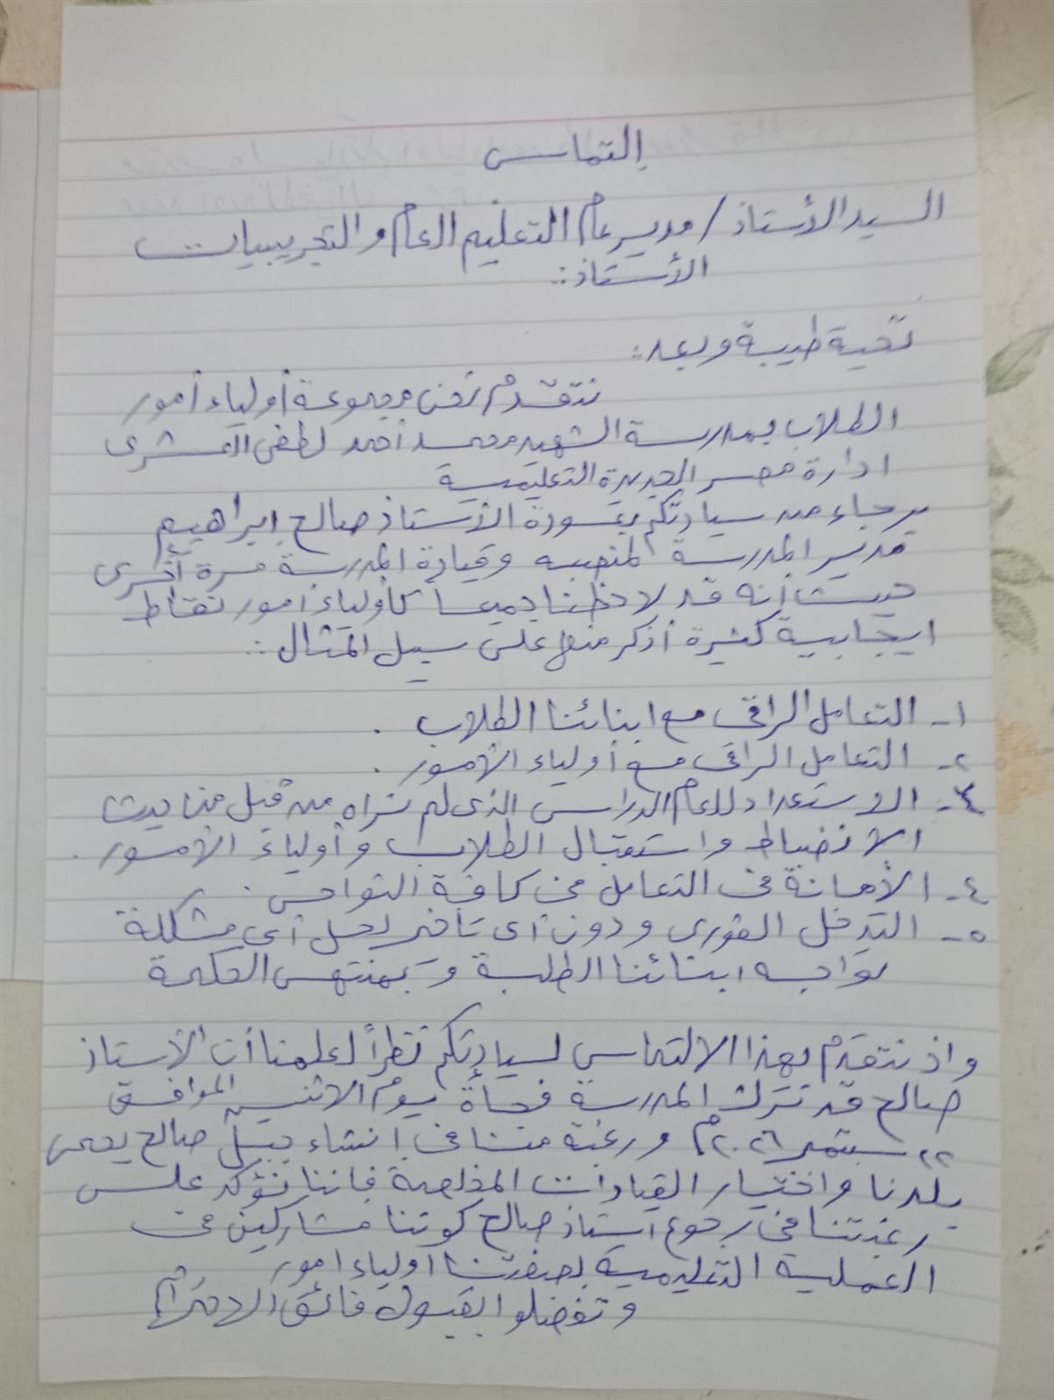 إلتماس
السيد الأستاذ / مدير عام التعليم العام والتجريبيات
الأستاذ :
تحية طيبة وبعد :
نتقدم نحن مجموعة أولياء أمور
الطلاب بمدرسة الشهيد محمد أحمد لطفى العشرى
ادارة مصر الجديدة التعليمية
برجاء من سيادتكم بعودة الأستاذ صالح إبراهيم
مدير المدرسة لمنصبه وقيادة المدرسة مرة أخرى
حيث أنه قد لاحظنا جميعاً كأولياء أمور نقاط
ايجابية كثيرة أذكر منها على سبيل المثال :
١- التعامل الراقى مع ابنائنا الطلاب .
٢- التعامل الراقى مع أولياء الأمور .
٣- الاستعداد للعام الدراسى الذى لم نراه من قبل من حيث
الانضباط واستقبال الطلاب وأولياء الأمور .
٤- الأمانة فى التعامل فى كافة النواحى .
٥- التدخل الفورى ودون أى تأخير لحل أى مشكلة
تواجه ابنائنا الطلبة وبمنتهى الحكمة
واذ نتقدم بهذا الالتماس لسيادتكم نظراً لعلمنا أن الأستاذ
صالح قد ترك المدرسة فجأة يوم الاثنين الموافق
٢٢ سبتمبر ورغبة مننا فى إنشاء جيل صالح يحمى
بلدنا واختيار القيادات المخلصة فإننا نؤكد على
رغبتنا فى رجوع أستاذ صالح كوننا مشاركين فى
العملية التعليمية بصفتنا أولياء امور
وتفضلوا بقبول فائق الاحترام